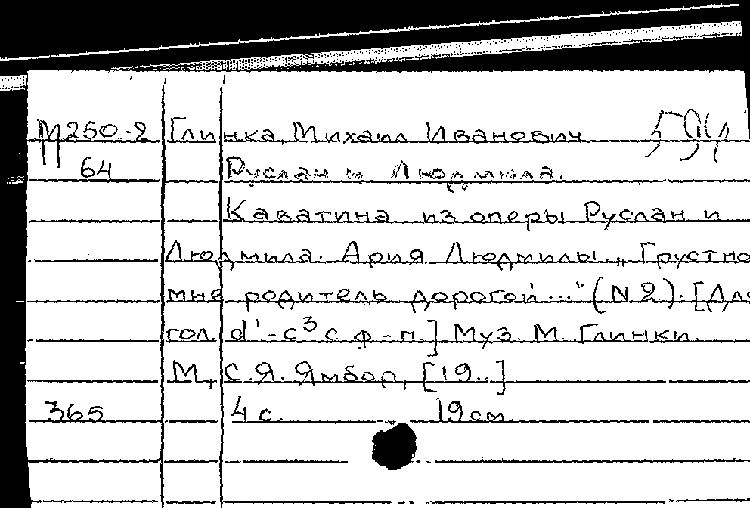 М250-2 Глинка, Михаил Иванович 594
64 Руслан и Людмила.
Каватина из оперы Руслан и
Людмила. Ария Людмилы „Грустно
мне родитель дорогой..." (N 2). [Для
гол. d'-c³ с ф-п.] Муз. М. Глинки.
М., С.Я. Ямбор, [19..]
365 4 с. 19 см